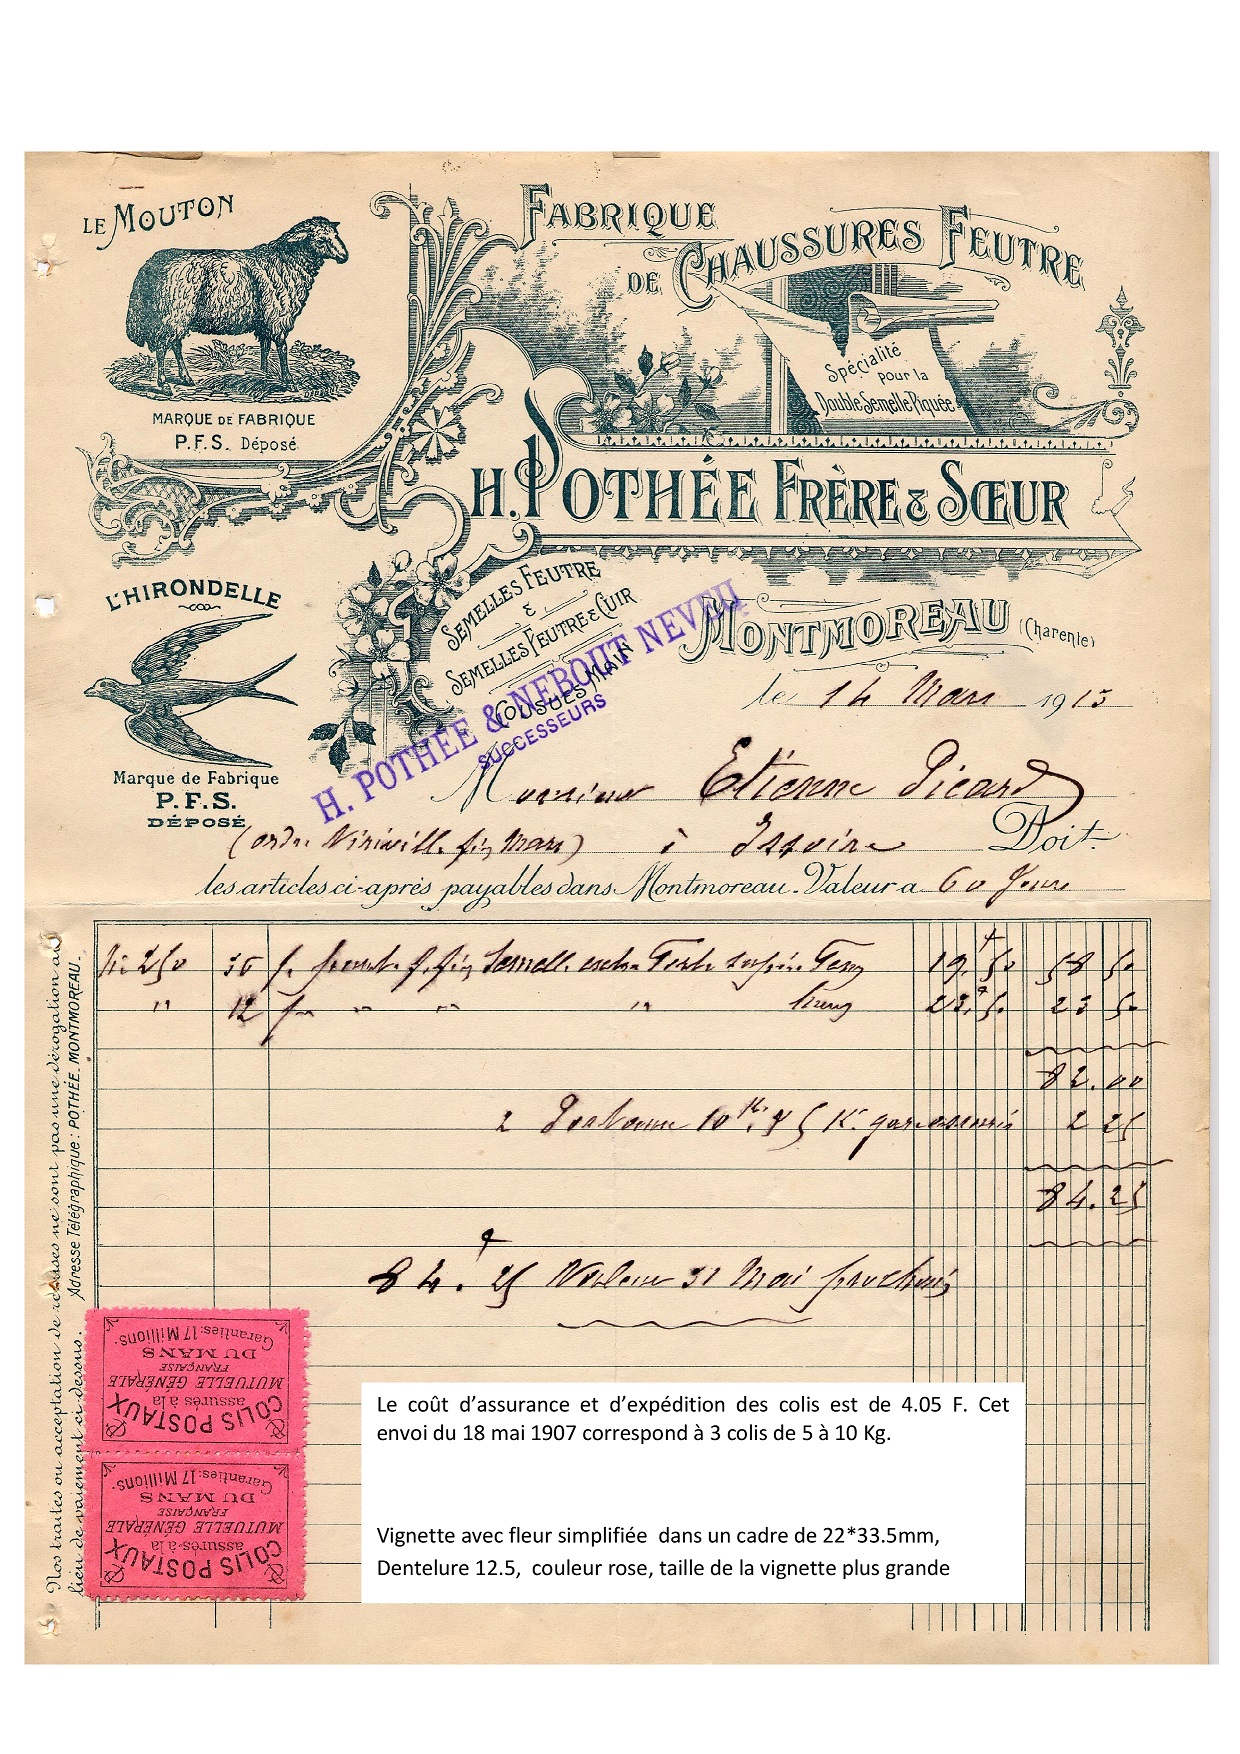 LE MOUTON
MARQUE DE FABRIQUE
P.F.S. Déposé
FABRIQUE
DE CHAUSSURES FEUTRE
Spécialité
pour la
Double Semelle Piquée
H. POTHÉE FRÈRE & SŒUR
L'HIRONDELLE
Marque de Fabrique
P.F.S.
DÉPOSÉ
SEMELLES FEUTRE
&
SEMELLES FEUTRE & CUIR
COUSUES MAIN
H. POTHÉE & NEBOUT NEVEU
SUCCESSEURS
MONTMOREAU (Charente)
le 14 Mars 1913
Monsieur Etienne Picard
à Issoire Doit
les articles ci-après payables dans Montmoreau. Valeur a 60 jours
250 36 19. 50 58 50
" 12 " " " 23. 50 23 50
82.00
2 10 K. & 5 K. 2 25
84.25
84. 25 Valeur 31 Mai prochain
Nos traites ou acceptation de remises ne sont pas une dérogation au
lieu de paiement ci-dessus. Adresse Télégraphique: POTHÉE. MONTMOREAU.
COLIS POSTAUX
assurés à la
MUTUELLE GÉNÉRALE
FRANÇAISE
DU MANS
Garanties: 17 Millions.
COLIS POSTAUX
assurés à la
MUTUELLE GÉNÉRALE
FRANÇAISE
DU MANS
Garanties: 17 Millions.
Le coût d'assurance et d'expédition des colis est de 4.05 F. Cet
envoi du 18 mai 1907 correspond à 3 colis de 5 à 10 Kg.
Vignette avec fleur simplifiée dans un cadre de 22*33.5mm,
Dentelure 12.5, couleur rose, taille de la vignette plus grande